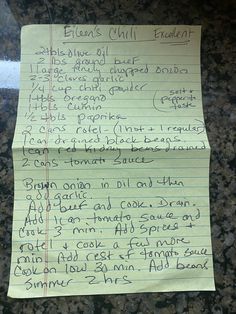 Eileen's Chili Excellent
2 tbls olive oil
2 lbs ground beef
1 large finely chopped onion
2-3 cloves garlic
1/4 cup chili powder
1 tbls oregano
1 tbls cumin
salt + pepper to taste
1/2 tbls paprika
2 cans rotel - (1 hot + 1 regular)
1 can drained black beans
1 can red kidney beans drained
2 cans tomato sauce
Brown onion in oil and then
add garlic.
Add beef and cook. Drain.
Add 1 can tomato sauce and
cook 3 min. Add spices +
rotel + cook a few more
min. Add rest of tomato sauce
Cook on low 30 min. Add beans
Simmer 2 hrs